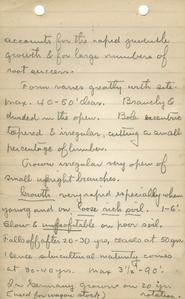 accounts for the rapid juvenile
growth & for large numbers of
root suckers.
Form varies greatly with site.
max. 40-50' clear. Branchy &
divided in the open. Bole eccentric
tapered & irregular, cutting a small
percentage of lumber.
Crown irregular very open of
small upright branches.
Growth very rapid especially when
young and on loose rich soil. 1-6'
Slow & unprofitable on poor soil.
Falls off after 20-30 yrs, ceases at 50 yrs
Hence silvicultural maturity comes
at 30-40 yrs. max 3½'-90'.
In Germany grown on 20 yr.
(used for wagon stock) rotation.